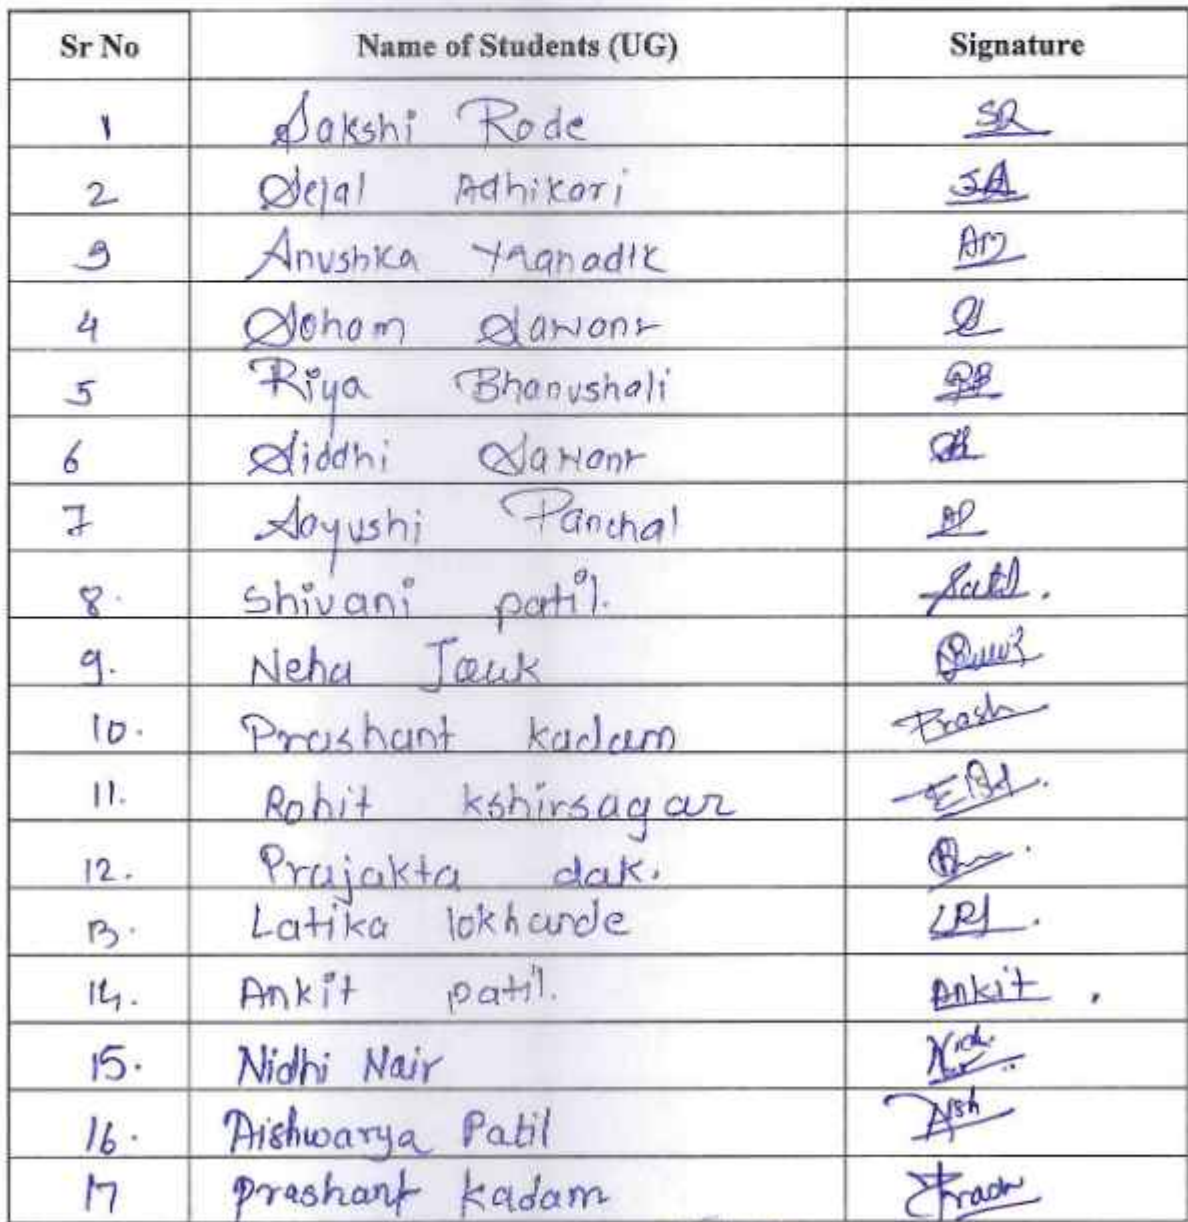 Sr No Name of Students (UG) Signature
1 Sakshi Rode SR
2 Sejal Adhikari SA
3 Anushka Mahadik AM
4 Soham Sawant
5 Riya Bhanushali RB
6 Siddhi Sawant
7 Aayushi Panchal AP
8. Shivani patil. Patil.
9. Neha
10. Prashant kadam Prash
11. Rohit kshirsagar
12. Prajakta dak.
13. Latika lokhande
14. Ankit patil. Ankit.
15. Nidhi Nair Nidhi
16. Aishwarya Patil Aish
17 Prashant kadam